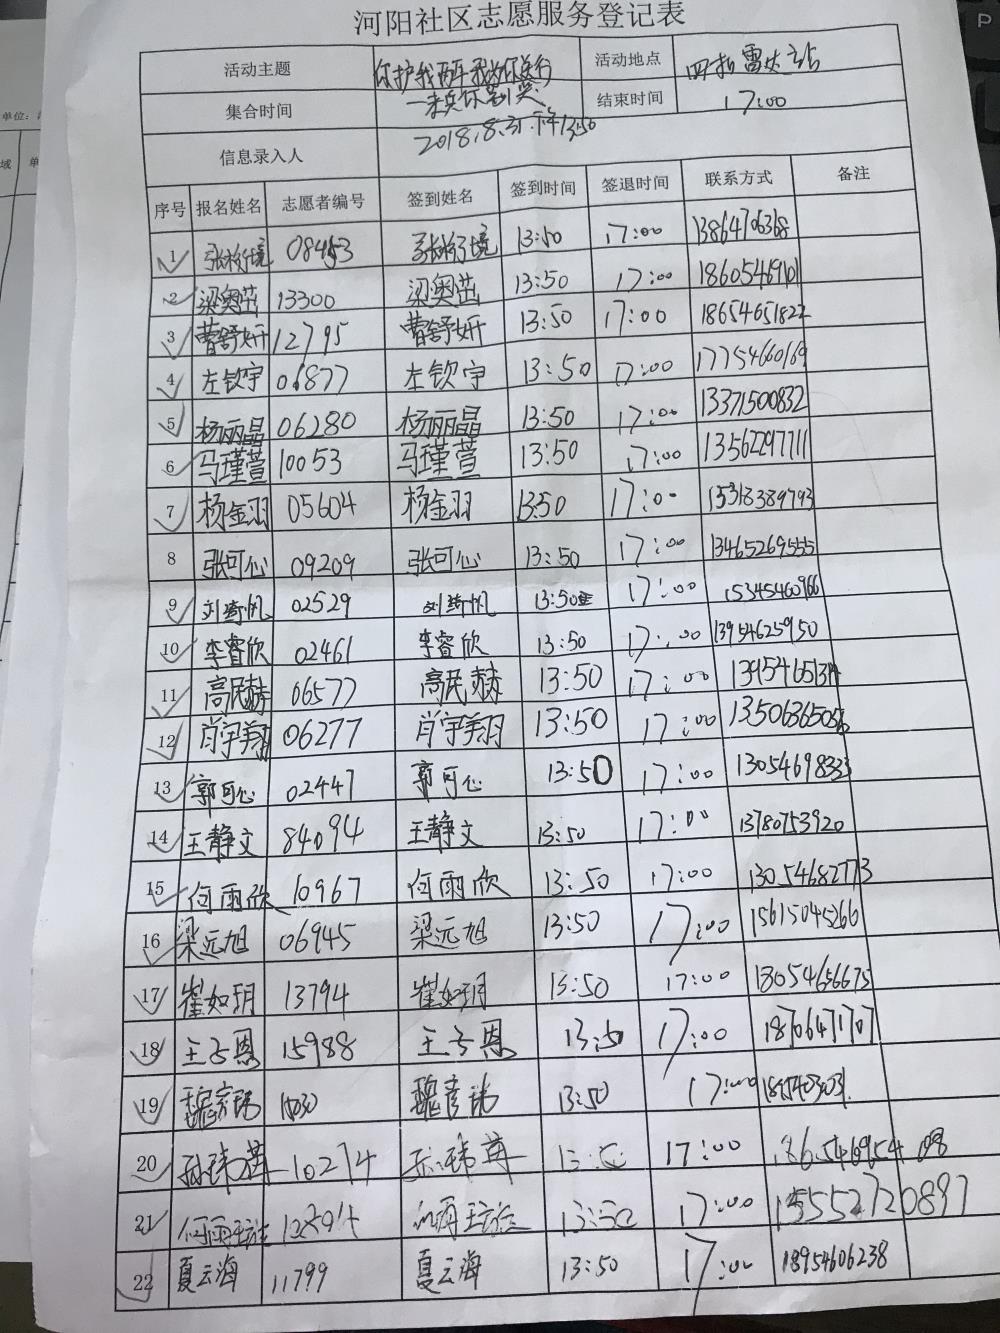 河阳社区志愿服务登记表
活动主题 你护我两年 我为你送行 活动地点 四扣雷达站
一未央你别哭
集合时间 2018.8.31.下午13:50 结束时间 17:00
信息录入人
序号 报名姓名 志愿者编号 签到姓名 签到时间 签退时间 联系方式 备注
1 08453 13:50 17:00 13864706368
2 梁奥茁 13300 梁奥茁 13:50 17:00 18605469101
3 曹舒妍 12795 曹舒妍 13:50 17:00 18654651822
4 左钦宇 06877 左钦宇 13:50 17:00 17754660169
5 杨丽晶 06280 杨丽晶 13:50 17:00 13371500832
6 马瑾萱 10053 马瑾萱 13:50 17:00 13562297711
7 杨金羽 05604 杨金羽 13:50 17:00 15318389793
8 张可心 09209 张可心 13:50 17:00 13465269555
9 刘绮帆 02529 刘绮帆 13:50 17:00 15345460966
10 李睿欣 02461 李睿欣 13:50 17:00 13954625950
11 高民赫 06577 高民赫 13:50 17:00
12 肖宇翔 06277 肖宇翔 13:50 17:00
13 郭可心 02447 郭可心 13:50 17:00 13054698333
14 王静文 84094 王静文 13:50 17:00 13780753920
15 何雨欣 10967 何雨欣 13:50 17:00 13054682773
16 梁远旭 06945 梁远旭 13:50 17:00 15615045266
17 崔如玥 13794 崔如玥 13:50 17:00 13054656675
18 王子恩 15988 王子恩 13:50 17:00 18706471707
19 13:50 17:00
20 10274 13:50 17:00
21 13:50 17:00 15552720897
22 夏云海 11799 夏云海 13:50 17:00 18954606238